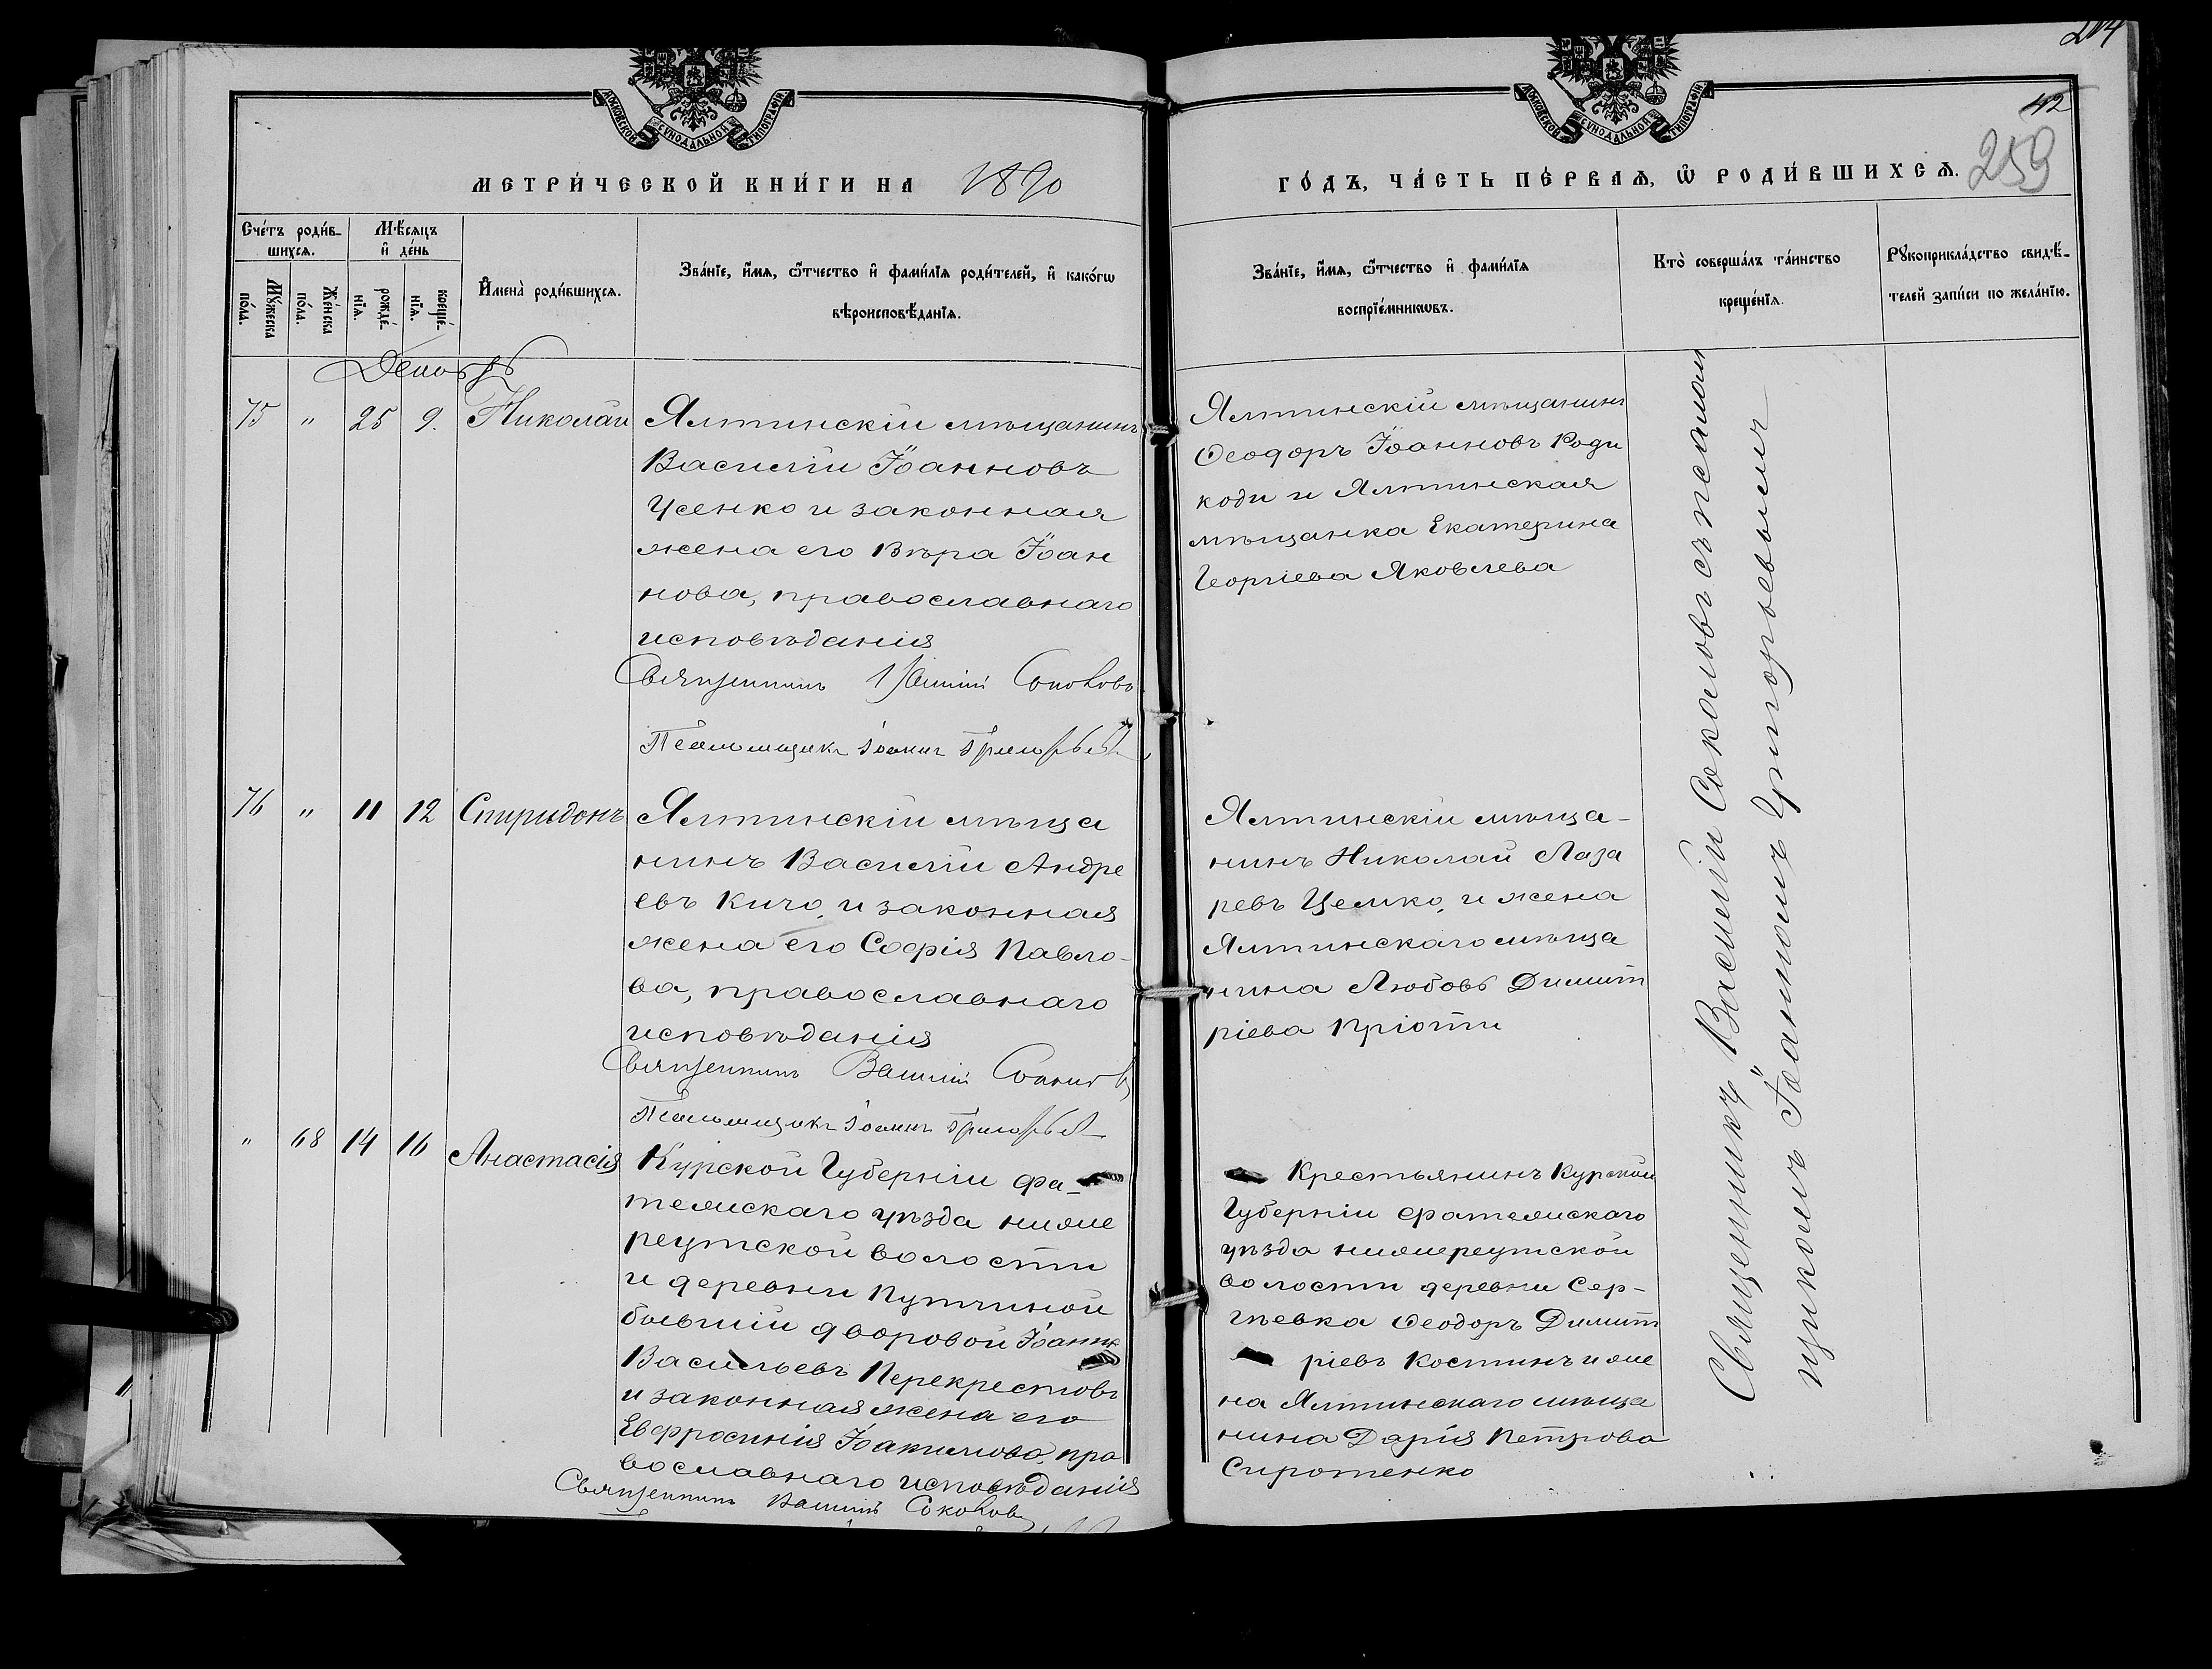 204
42
259
МОСКОВСКОЙ СѴНОДАЛЬНОЙ ТИПОГРАФІИ
МОСКОВСКОЙ СѴНОДАЛЬНОЙ ТИПОГРАФІИ
МЕТРИ́ЧЕСКОЙ КНИ́ГИ НА 1890
ГО́ДЪ, ЧА́СТЬ ПЕ́РВАѦ, Ѡ РОДИ́ВШИХСѦ.
Сче́тъ роди́в-
шихсѧ.
Мꙋ́жеска по́ла.
Же́нска по́ла.
Мѣ́сѧцъ
и҆ де́нь
рожде́-
нїѧ.
креще́-
нїѧ.
И҆мена̀ роди́вшихсѧ.
Зва́нїе, и҆́мѧ, ѻ҆́тчество и҆ фами́лїѧ роди́телей, и҆ како́гѡ
вѣроисповѣ́данїѧ.
Зва́нїе, и҆́мѧ, ѻ҆́тчество и҆ фами́лїѧ
воспрїе́мникѡвъ.
Кто̀ соверша́лъ та́инство
креще́нїѧ.
Рꙋкоприкла́дство свидѣ́-
телей за́писи по жела́нїю.
Декабрь
75 " 25 9. Николай
Ялтинскій мѣщанинъ
Василій Іоанновъ
Усенко и законная
жена его Вѣра Іоан
нова, православнаго
исповѣданія
Священникъ Василій Соколовъ
Псаломщикъ Іоаннъ Григорьевъ
Ялтинскій мѣщанинъ
Ѳеодоръ Іоанновъ Роди
коди и Ялтинская
мѣщанка Екатерина
Георгіева Яковлева
76 " 11 12 Спиридонъ
Ялтинскій мѣща
нинъ Василій Андре
евъ Кичо, и законная
жена его Софія Павло-
ва, православнаго
исповѣданія
Священникъ Василій Соколовъ
Псаломщикъ Іоаннъ Григорьевъ
Ялтинскій мѣща-
нинъ Николай Лаза
ревъ Целико, и жена
Ялтинскаго мѣща
нина Любовь Димит
ріева Пріотти
" 68 14 16 Анастасія
Курской Губерніи Фа-
тежскаго уѣзда ниже
реутской волости
и деревни Путчиной
бывшій дворовой Іоаннъ
Васильевъ Перекрестовъ
и законная жена его
Евфросинія Іоакимова, пра
вославнаго исповѣданія
Священникъ Василій Соколовъ
Крестьянинъ Курской
Губерніи Фатежскаго
уѣзда нижереутской
волости деревни Сер-
гѣевка Ѳеодоръ Димит
ріевъ Костинъ и же
на Ялтинскаго мѣща
нина Дарія Петрова
Сиротенко
Священникъ Василій Соколовъ съ псалом
щикомъ Іоанномъ Григорьевымъ